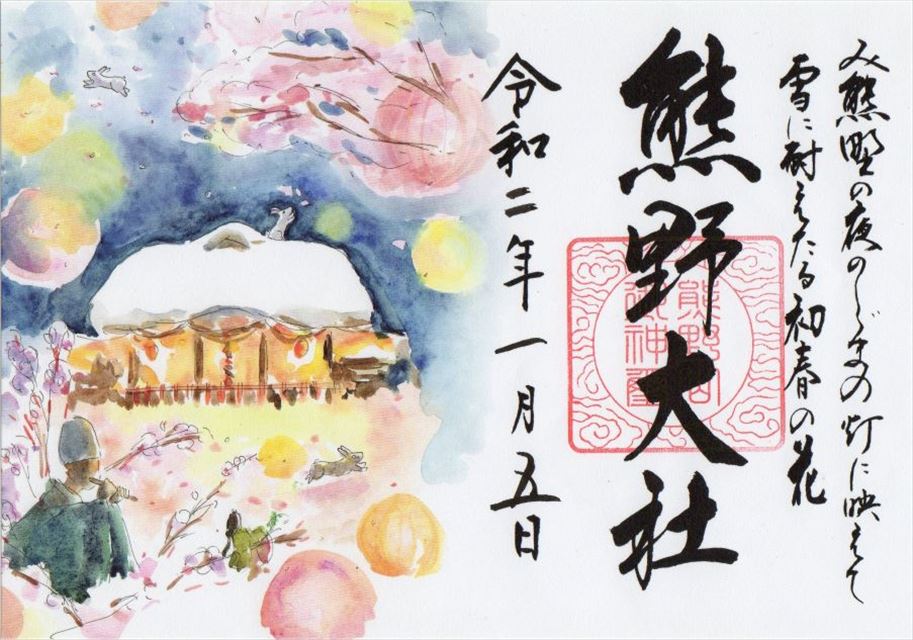 み熊野の夜のしゞまの灯に映えて
雪に耐えたる初春の花
熊野大社
令和二年一月五日